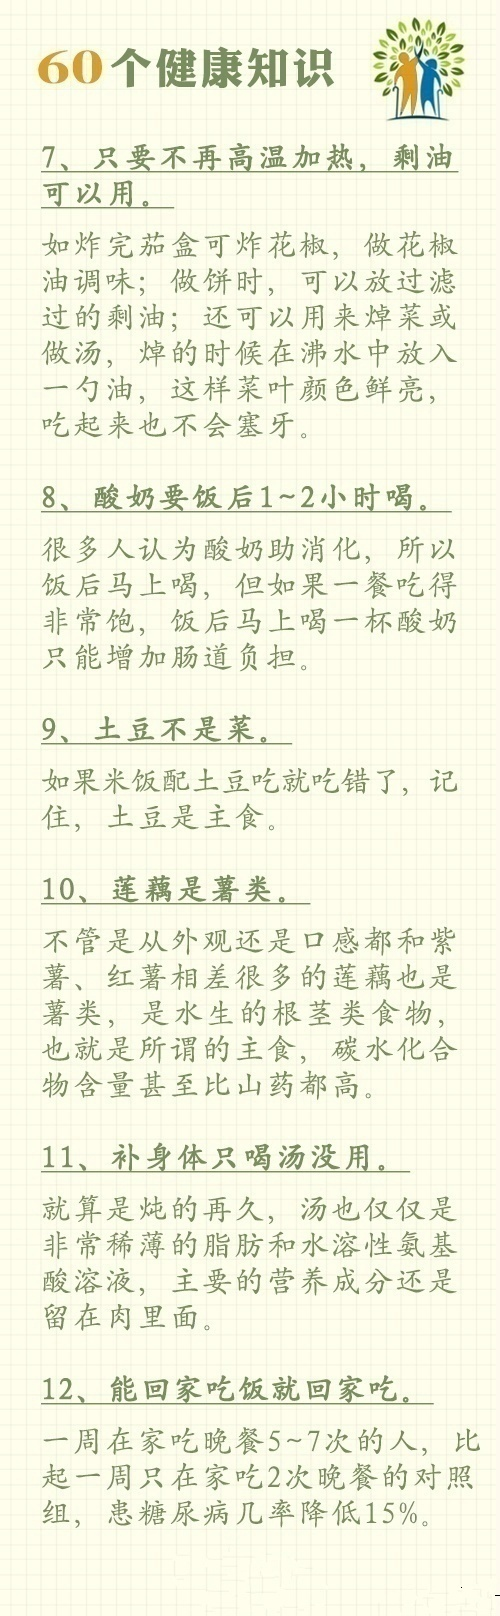 60个健康知识
7、只要不再高温加热，剩油
可以用。
如炸完茄盒可炸花椒，做花椒
油调味；做饼时，可以放过滤
过的剩油；还可以用来焯菜或
做汤，焯的时候在沸水中放入
一勺油，这样菜叶颜色鲜亮，
吃起来也不会塞牙。
8、酸奶要饭后1~2小时喝。
很多人认为酸奶助消化，所以
饭后马上喝，但如果一餐吃得
非常饱，饭后马上喝一杯酸奶
只能增加肠道负担。
9、土豆不是菜。
如果米饭配土豆吃就吃错了，记
住，土豆是主食。
10、莲藕是薯类。
不管是从外观还是口感都和紫
薯、红薯相差很多的莲藕也是
薯类，是水生的根茎类食物，
也就是所谓的主食，碳水化合
物含量甚至比山药都高。
11、补身体只喝汤没用。
就算是炖的再久，汤也仅仅是
非常稀薄的脂肪和水溶性氨基
酸溶液，主要的营养成分还是
留在肉里面。
12、能回家吃饭就回家吃。
一周在家吃晚餐5~7次的人，比
起一周只在家吃2次晚餐的对照
组，患糖尿病几率降低15%。